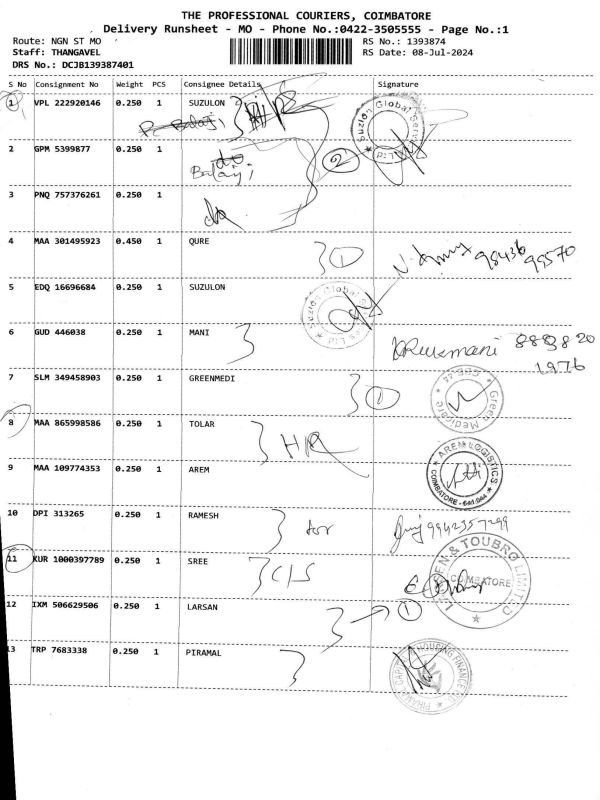 THE PROFESSIONAL COURIERS, COIMBATORE
Delivery Runsheet - MO - Phone No.:0422-3505555 - Page No.:1
Route: NGN ST MO RS No.: 1393874
Staff: THANGAVEL RS Date: 08-Jul-2024
DRS No.: DCJB139387401
S No Consignment No Weight PCS Consignee Details Signature
1 VPL 222920146 0.250 1 SUZULON
Suzlon Global Services Ltd
2 GPM 5399877 0.250 1
do
Balaji 2
3 PNQ 757376261 0.250 1
do
4 MAA 301495923 0.450 1 QURE 1 98436 99570
5 EDQ 16696684 0.250 1 SUZULON
Suzlon Global Services Ltd
6 GUD 446038 0.250 1 MANI Rukmani
1976
7 SLM 349458903 0.250 1 GREENMEDI 1 Green Medicare
8 MAA 865998586 0.250 1 TOLAR
9 MAA 109774353 0.250 1 AREM AREM LOGISTICS COIMBATORE - 641 044
10 DPI 313265 0.250 1 RAMESH 9942357299
11 KUR 1000397789 0.250 1 SREE C/S
LARSEN & TOUBRO LIMITED COIMBATORE
12 IXM 506629506 0.250 1 LARSAN 1
13 TRP 7683338 0.250 1 PIRAMAL PIRAMAL CAPITAL HOUSING FINANCE